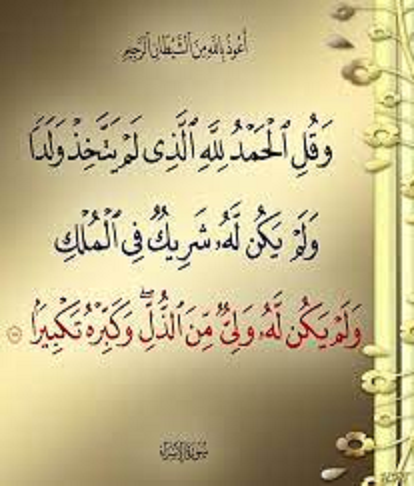 أَعُوذُ بِاللَّهِ مِنَ ٱلشَّيْطَانِ ٱلرَّجِيمِ
وَقُلِ ٱلْحَمْدُ لِلَّهِ ٱلَّذِى لَمْ يَتَّخِذْ وَلَدًا
وَلَمْ يَكُن لَّهُۥ شَرِيكٌ فِى ٱلْمُلْكِ
وَلَمْ يَكُن لَّهُۥ وَلِىٌّ مِّنَ ٱلذُّلِّ ۖ وَكَبِّرْهُ تَكْبِيرًۢا
سورة الإسراء